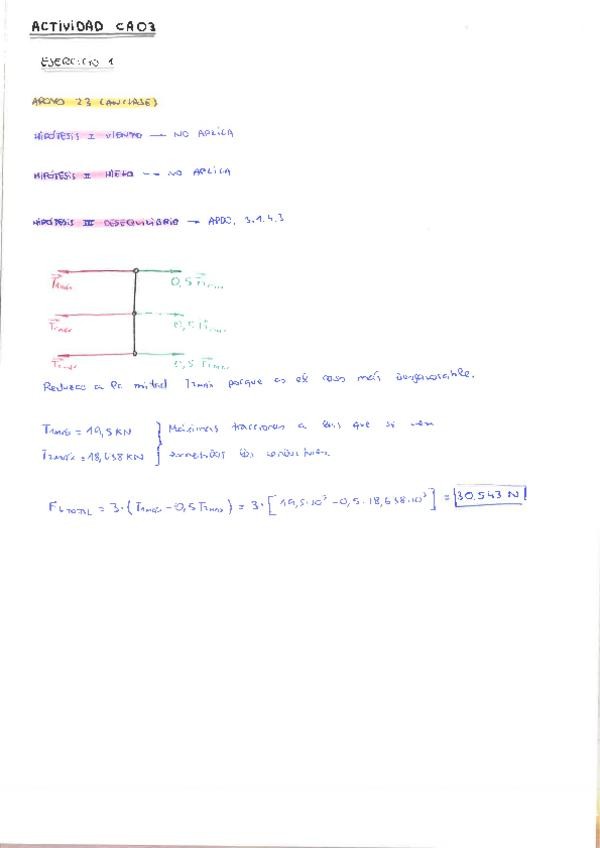 ACTIVIDAD CA03
EJERCICIO 1
APOYO 23 (ANCLAJE)
HIPÓTESIS I VIENTO → NO APLICA
HIPÓTESIS II HIELO → NO APLICA
HIPÓTESIS III DESEQUILIBRIO → APDO. 3.1.4.3
T1máx 0,5 T2máx
T1máx 0,5 T2máx
T1máx 0,5 T2máx
Reduzco a la mitad T2máx porque es el caso más desfavorable.
T1máx = 19,5 KN } Máximas tracciones a las que se ven
T2máx = 18,638 KN } sometidos los conductores.
FL TOTAL = 3·(T1máx - 0,5 T2máx) = 3·[19,5·10³ - 0,5·18,638·10³] = 30.543 N